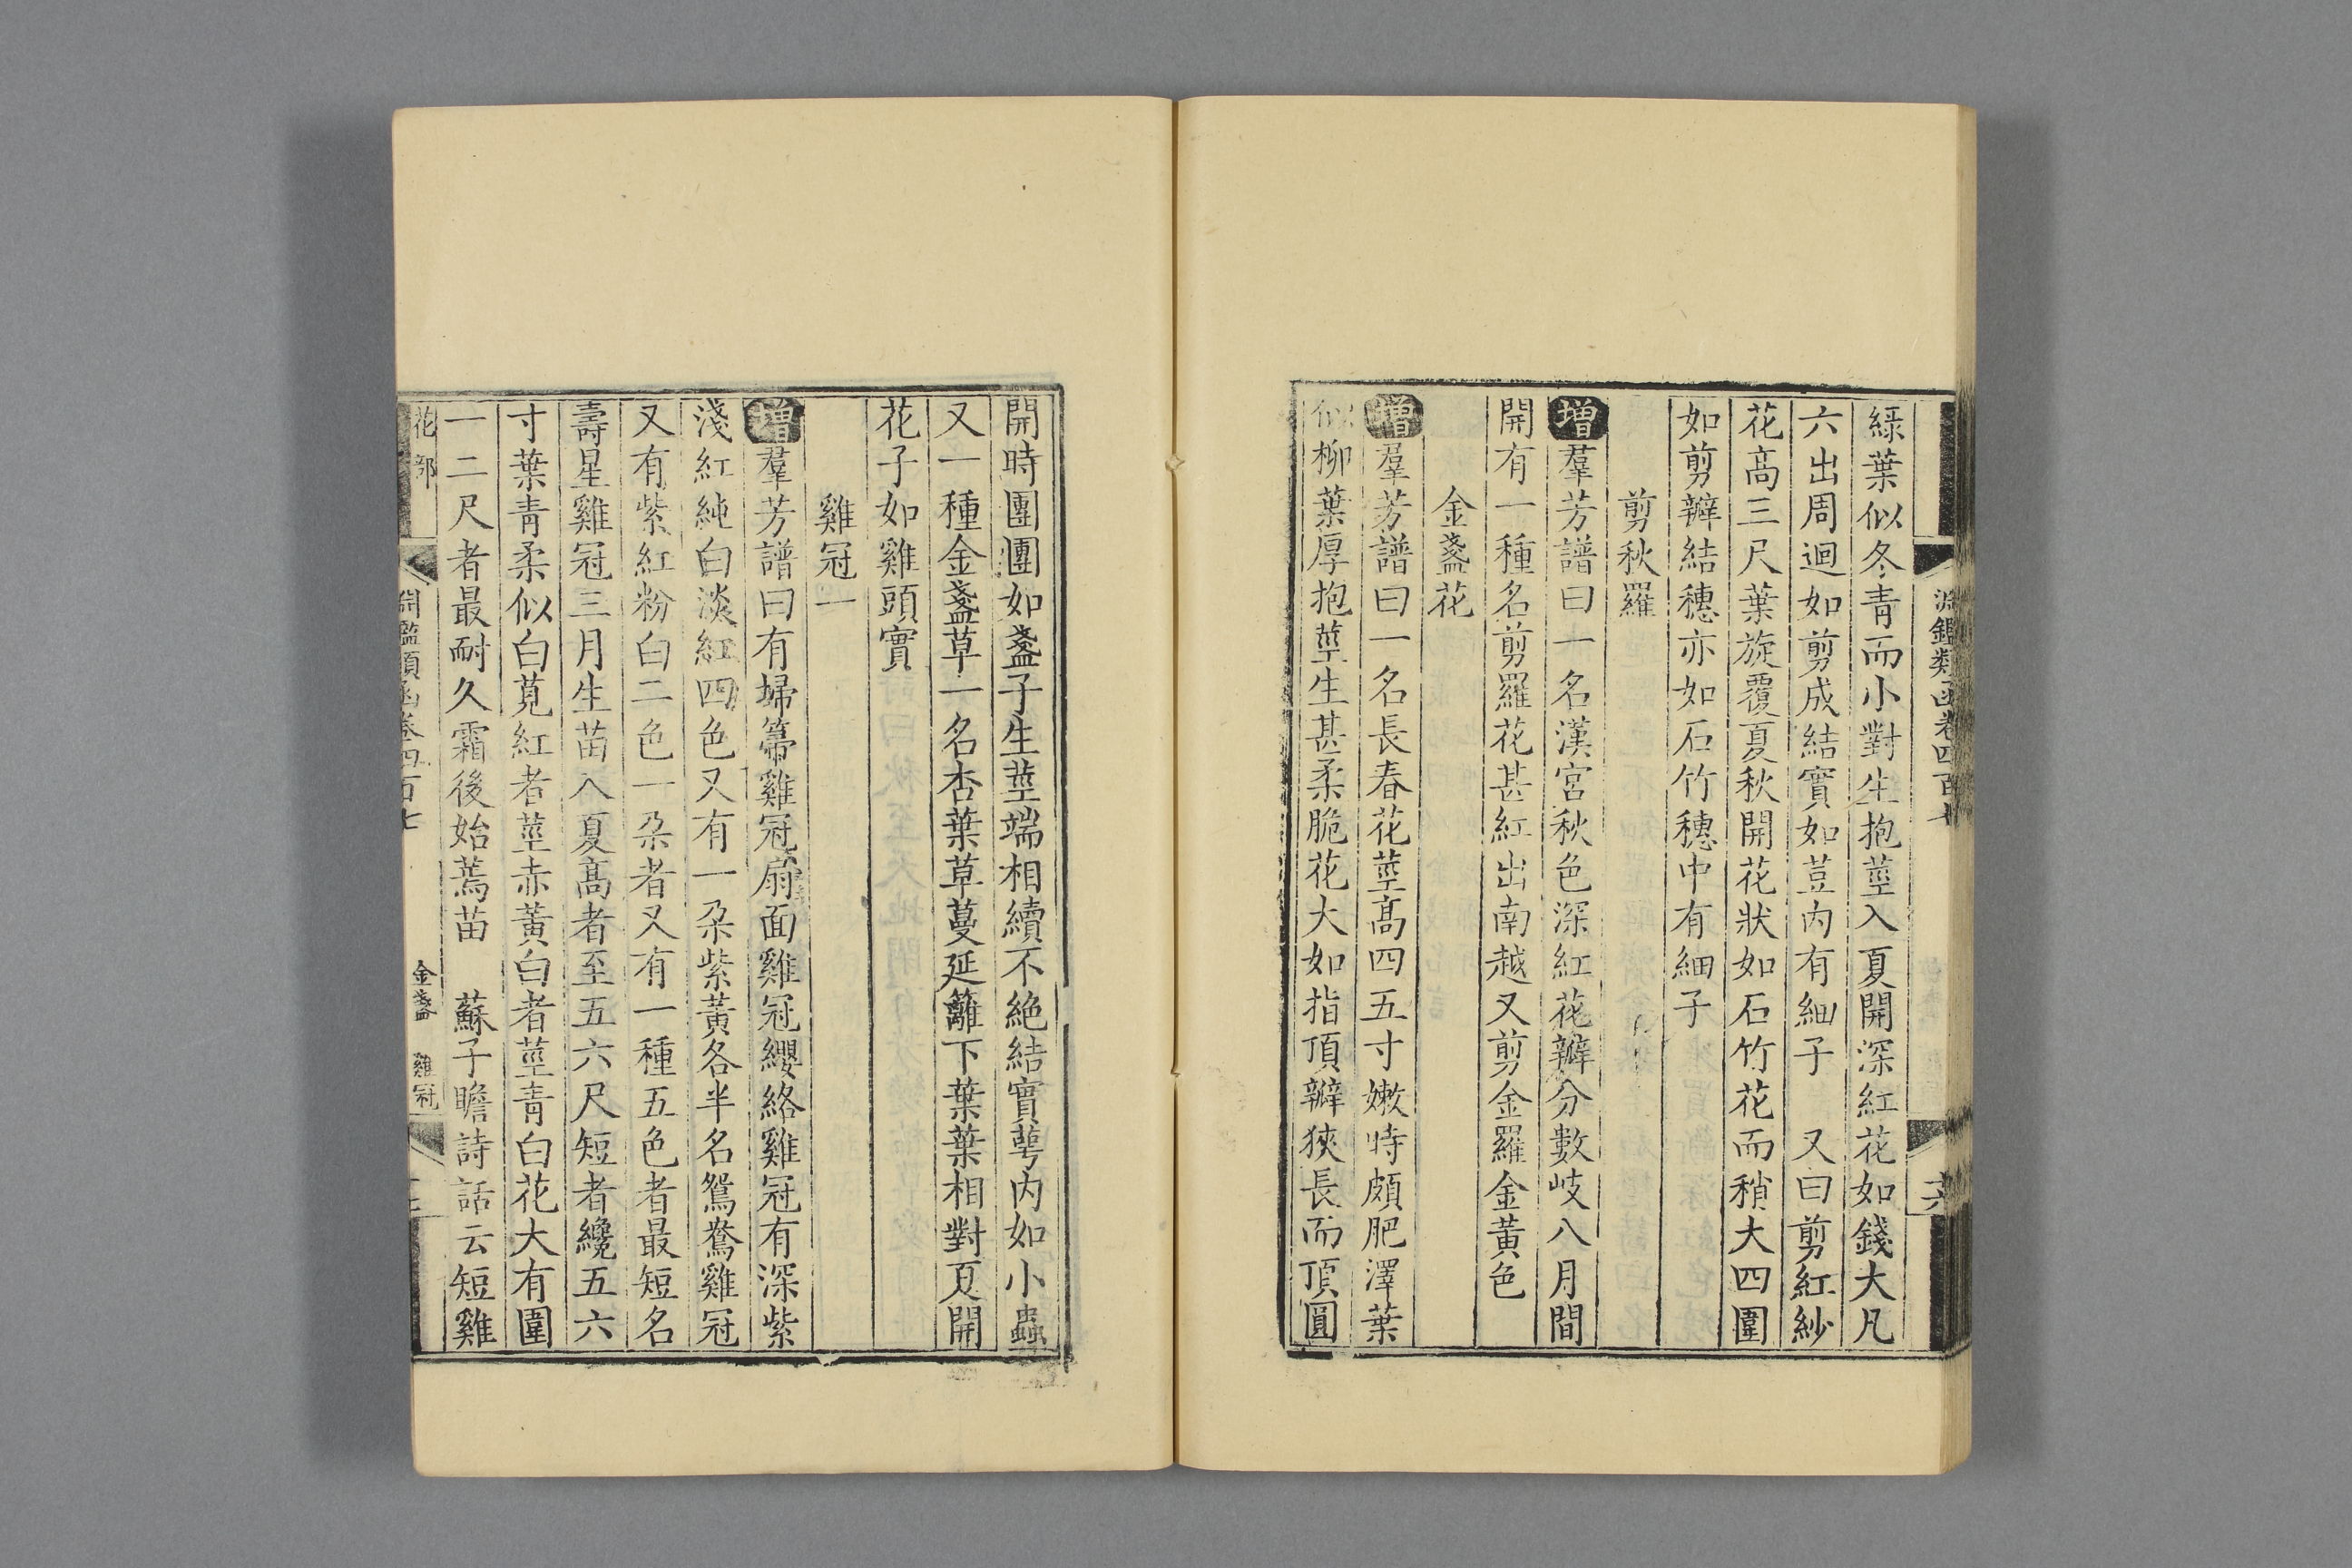 淵鑑類函卷四百七
十六
綠葉似冬青而小對生抱莖入夏開深紅花如錢大凡
六出周迴如剪成結實如荳內有細子　又曰剪紅紗
花高三尺葉旋覆夏秋開花狀如石竹花而稍大四圍
如剪瓣結穗亦如石竹穗中有細子
剪秋羅
增羣芳譜曰一名漢宮秋色深紅花瓣分數岐八月間
開有一種名剪羅花甚紅出南越又剪金羅金黃色
金盞花
增羣芳譜曰一名長春花莖高四五寸嫩時頗肥澤葉
似柳葉厚抱莖生甚柔脆花大如指頂瓣狹長而頂圓
開時團團如盞子生莖端相續不絕結實萼內如小蟲
又一種金盞草一名杏葉草蔓延籬下葉葉相對夏開
花子如雞頭實
雞冠一
增羣芳譜曰有埽箒雞冠扇面雞冠纓絡雞冠有深紫
淺紅純白淡紅四色又有一朶紫黃各半名鴛鴦雞冠
又有紫紅粉白二色一朶者又有一種五色者最短名
壽星雞冠三月生苗入夏高者至五六尺短者纔五六
寸葉青柔似白莧紅者莖赤黃白者莖青白花大有圍
一二尺者最耐久霜後始蔫苗　蘇子瞻詩話云短雞
花部
淵鑑類函卷四百七
金盞　雞冠